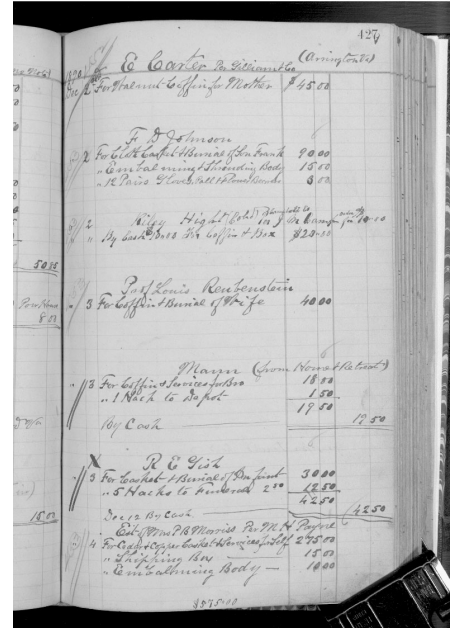 427
E Carter Per Gilliam & Co (Arrington Va)
1890
Dec 2 For Walnut Coffin for Mother $45.00
F D Johnson
2 For Cloth Casket & Burial of Son Frank 90.00
" Embalming & Shrouding Body 15.00
" 12 Pairs Gloves 6.00
2 Riley Hight (Cold)
" By Cash For Coffin & Box $20.00
Prof Louis Reubenstein
3 For Coffin & Burial of Wife 40.00
Mann (from Home & Retreat)
3 For Coffin & Services for Bro 18.00
" 1 Hack to Depot 1.50
19.50
By Cash
X R E Gish
3 For Casket & Burial of 30.00
" 5 Hacks to Funeral 2.50 12.50
42.50
Dec 12 By Cash 42.50
Est of Mrs P B Morriss Per M H Payne
4 For Cedar & Copper Casket & Services for Self 275.00
" Shipping Box 15.00
" Embalming Body 10.00
50.85
8.00
15.00